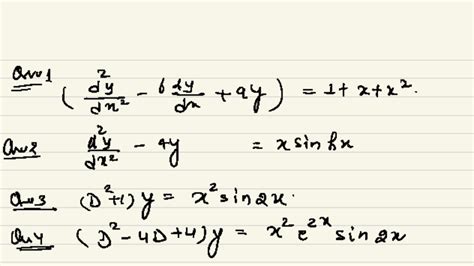 Qus 1 ( d²y/dx² - 6 dy/dx + 9y ) = 1 + x + x².
Qus 2 d²y/dx² - 4y = x sin hx
Qus 3 (D²+1) y = x² sin 2x.
Qu 4 (D² - 4D + 4) y = x² e^2x sin 2x